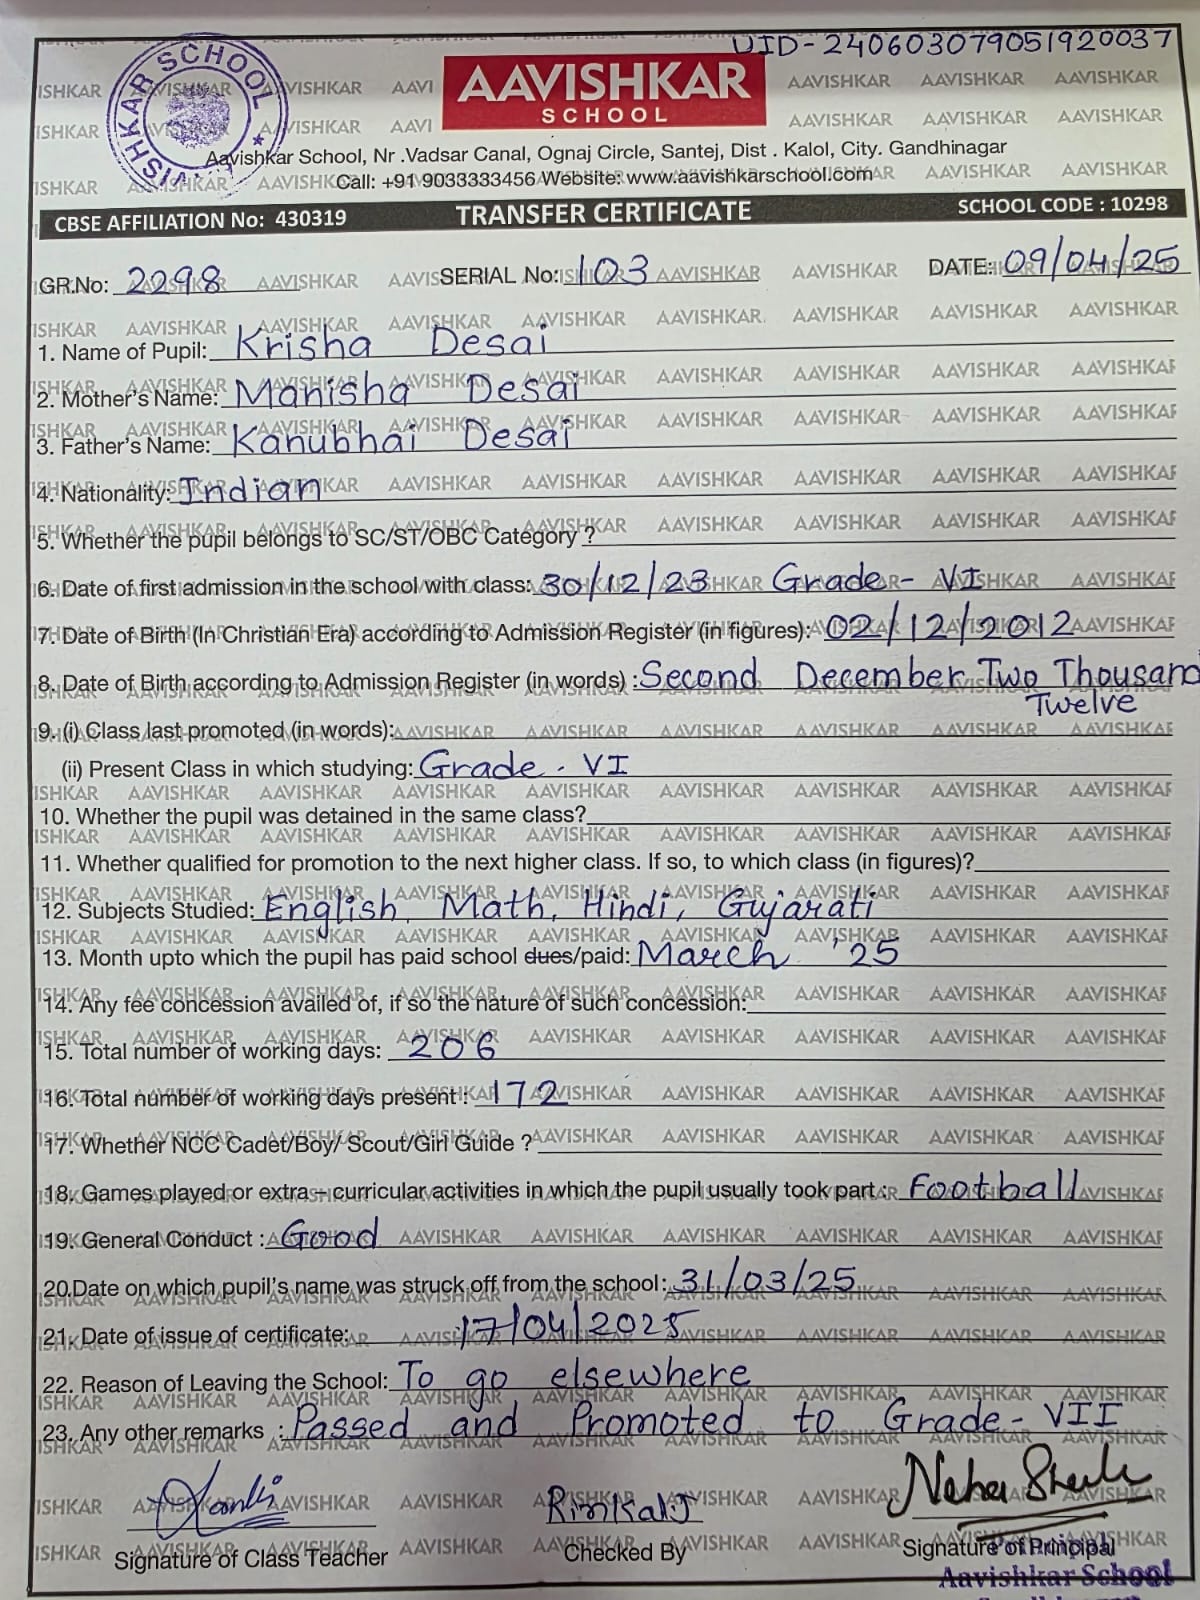 UID-240603079051920037
AAVISHKAR
SCHOOL
Aavishkar School, Nr .Vadsar Canal, Ognaj Circle, Santej, Dist . Kalol, City. Gandhinagar
Call: +91 9033333456 Website: www.aavishkarschool.com
CBSE AFFILIATION No: 430319 TRANSFER CERTIFICATE SCHOOL CODE : 10298
GR.No: 2298 SERIAL No: 103 DATE: 09/04/25
1. Name of Pupil: Krisha Desai
2. Mother's Name: Manisha Desai
3. Father's Name: Kanubhai Desai
4. Nationality: Indian
5. Whether the pupil belongs to SC/ST/OBC Category ?
6. Date of first admission in the school with class: 30/12/23 Grade- VI
7. Date of Birth (In Christian Era) according to Admission Register (in figures): 02/12/2012
8. Date of Birth according to Admission Register (in words) : Second December Two Thousand
Twelve
9. (i) Class last promoted (in words):
(ii) Present Class in which studying: Grade - VI
10. Whether the pupil was detained in the same class?
11. Whether qualified for promotion to the next higher class. If so, to which class (in figures)?
12. Subjects Studied: English, Math, Hindi, Gujarati
13. Month upto which the pupil has paid school dues/paid: March '25
14. Any fee concession availed of, if so the nature of such concession:
15. Total number of working days: 206
16. Total number of working days present : 172
17. Whether NCC Cadet/Boy/ Scout/Girl Guide ?
18. Games played or extra – curricular activities in which the pupil usually took part : Football
19. General Conduct : Good
20.Date on which pupil's name was struck off from the school: 31/03/25
21. Date of issue of certificate: 17/04/2025
22. Reason of Leaving the School: To go elsewhere
23. Any other remarks : Passed and Promoted to Grade- VII
Rinkal J
Signature of Class Teacher Checked By Signature of Principal
Aavishkar School